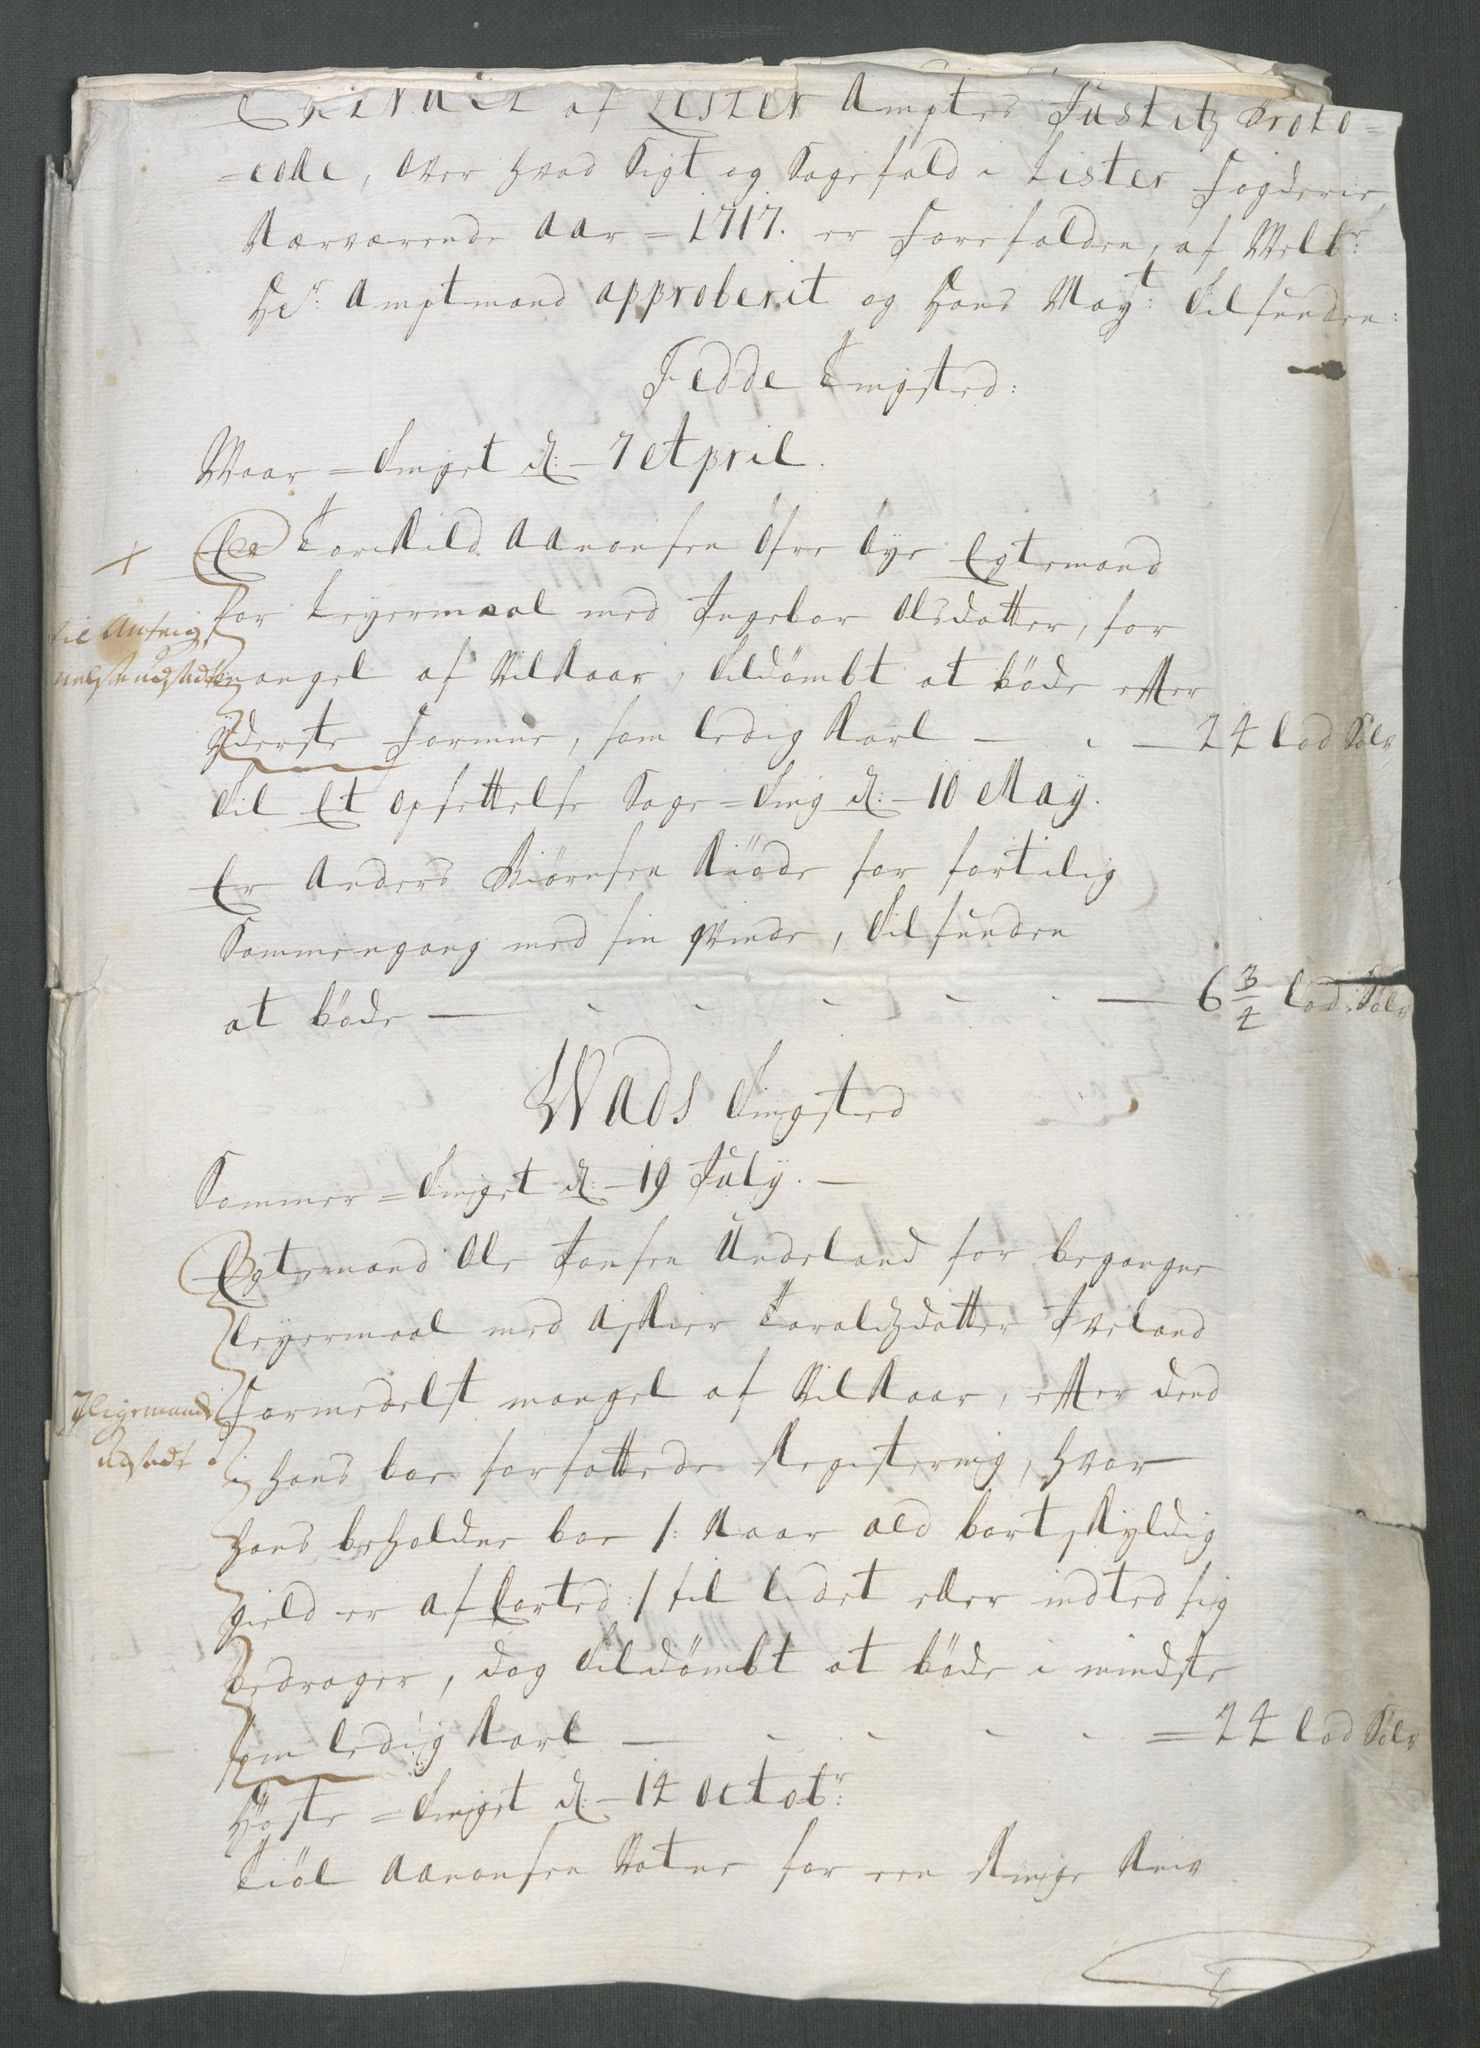 Extract af Lister Ampts Justitz Proto=
=colle, Over hvad Sigt og Sagefald i Lister Fogderie,
Nærværende Aar = 1717. er Forefalden, af Welbr:
Hr: Amptmand approberit og Hans Mayt: Tilfunden:
Fedde Tingsted:
Waar = Tinget d: - 7 April.
Er Torkild Aanonsen Öfre Öye Egtemand
for Leyermaal med Ingebor Olsdatter, for
mangel af Vilkaar, Tildömbt at böde efter
Yderste Formue, som ledig Karl — 24 lod Sölv
Til Et Opsettelse Sage = Ting d: - 10 May.
Er Anders Biörnsen for fortilig
Sammengang med sin Qvinde, Tilfunden
at böde — 6 3/4 lod Sölv
Wads Tingsted
Sommer = Tinget d: - 19 July. —
Egtemand Ole Jonsen Undeland for begangne
Leyermaal med Taraldzdatter Iveland
Formedelst mangel af Vilkaar, efter dend
i hans boe forfattede Registering, hvor
hans beholdne boe /: Naar all bortskyldig
gield er afkorted :/ til lidet eller indted sig
bedrager, dog Tildömbt at böde i mindste
som ledig Karl — 24 lod Sölv
Höste = Tinget d: - 14 Octobr:
Kiöl Aanonsen Vatne for een Ringe Kniv